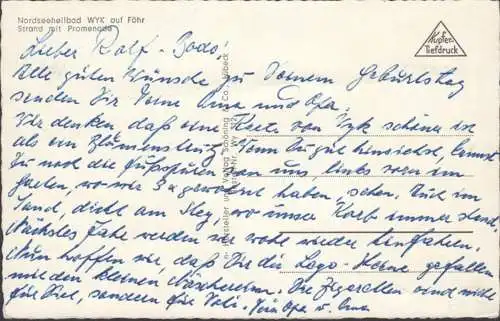 Nordseeheilbad WYK auf Föhr
Strand mit Promenade
Kupfer-
Tiefdruck
Lieber Rolf-Bodo!
Alle guten Wünsche zu Deinem Geburtstag
senden Dir Deine Oma und Opa.
Wir denken daß eine Karte von Wyk schöner ist
als ein Blumenstrauß. Wenn Du gut hinsiehst, kannst
Du noch die Fußspuren von uns, links vorn im
Garten, wo wir gewohnt haben, sehen. Auch im
Sand, dicht am Steg, wo unser Korb immer stand.
Nächstes Jahr werden wir wohl wieder hinfahren.
Nun hoffen wir, daß Dir die Lego-Steine gefallen
mit den kleinen Näschereien. Die Zigarellen sind nicht
für Dich, sondern für Vati. Dein Opa u. Oma
Hersteller und Verlag Schöning & Co., Lübeck